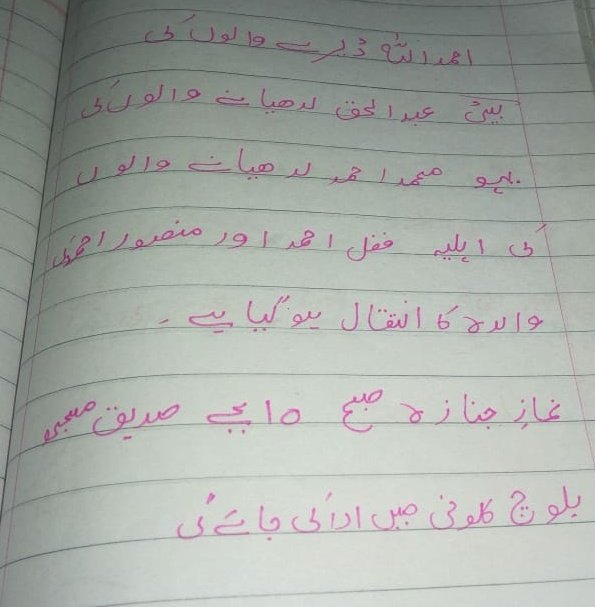 احمد اللہ ڈیرے والوں کی
بیٹی عبدالحق لدھیانے والوں کی
بہو محمد احمد لدھیانے والوں
کی اہلیہ فضل احمد اور منصور احمد کی
والدہ کا انتقال ہو گیا ہے ۔
نماز جنازہ صبح 10 بجے صدیق
بلوچ کلونی میں ادا کی جائے گی